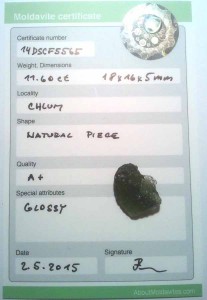 Moldavite certificate
Certificate number
14DSCF5565
Weight, Dimensions
11.60ct 18x16x5mm
Locality
CHLUM
Shape
NATURAL PIECE
Quality
A+
Special attributes
GLOSSY
Date
Signature
2.5.2015